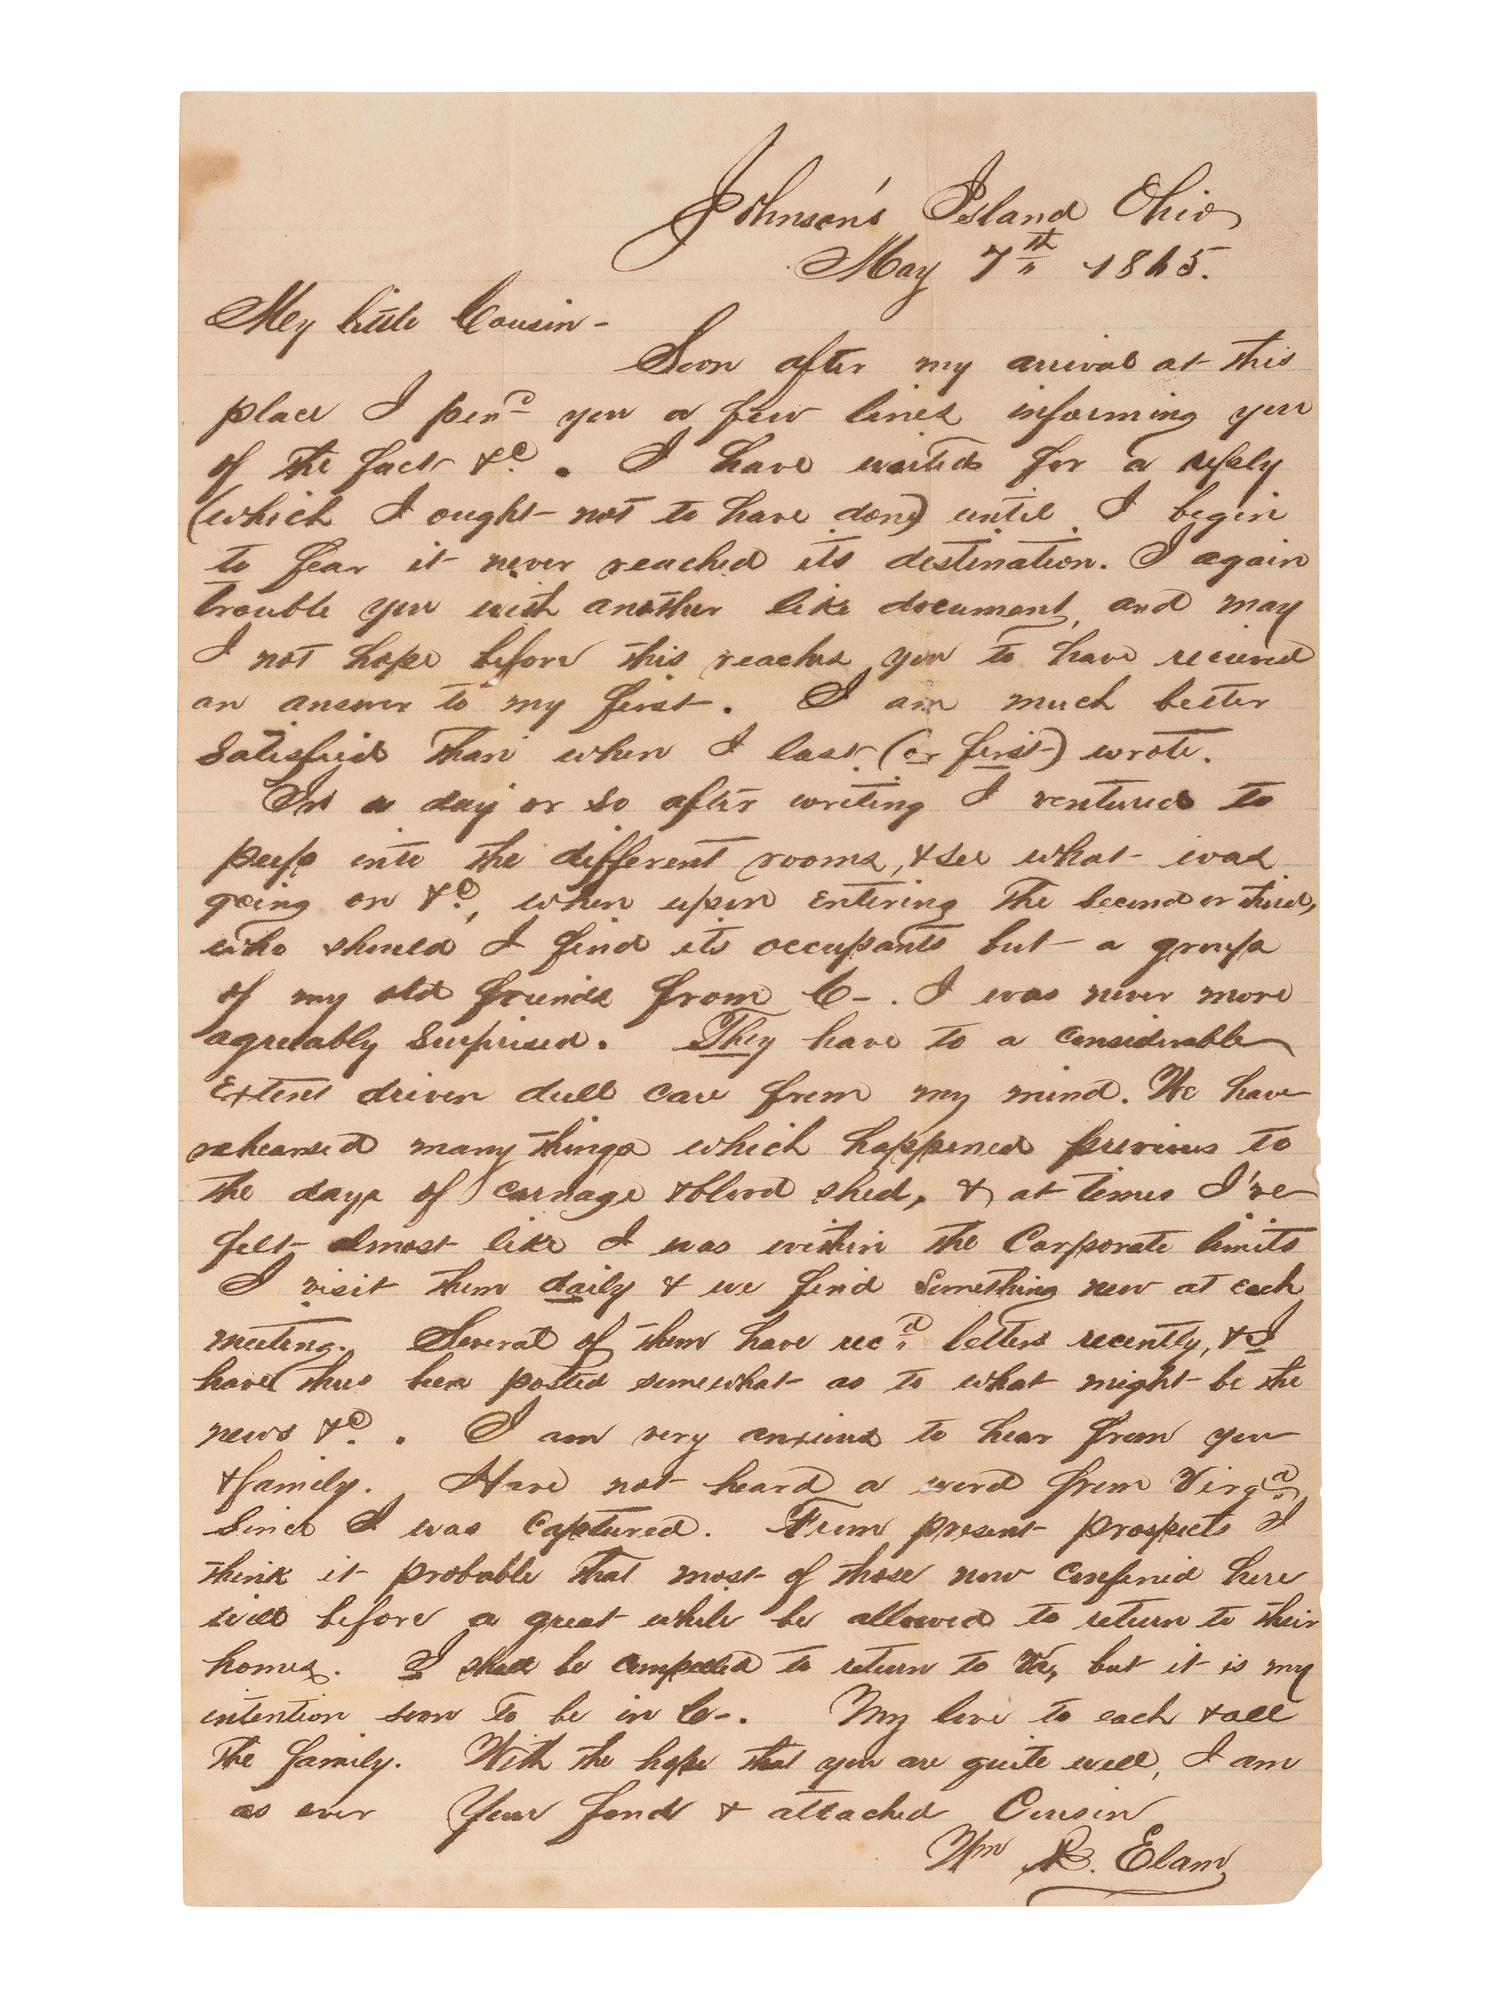 Johnson's Island Ohio
May 7th 1865.
My little Cousin-
Soon after my arrival at this
place I pen'd you a few lines informing you
of the fact &c. I have waited for a reply
(which I ought not to have done) until I begin
to fear it never reached its destination. I again
trouble you with another like document, and may
I not hope before this reaches you to have received
an answer to my first. I am much better
satisfied than when I last (or first) wrote.
In a day or so after writing I ventured to
peep into the different rooms, & see what was
going on &c., when upon entering the second or third,
who should I find its occupants but a group
of my old friends from C-. I was never more
agreeably surprised. They have to a considerable
extent driven dull care from my mind. We have
rehearsed many things which happened previous to
the days of carnage & blood shed, & at times I've
felt almost like I was within the Corporate limits
I visit them daily & we find something new at each
meeting. Several of them have recd letters recently, & I
have thus been posted somewhat as to what might be the
news &c. . I am very anxious to hear from you
& family. Have not heard a word from Virga
since I was captured. From present prospects I
think it probable that most of those now confined here
will before a great while be allowed to return to their
homes. I shall be compelled to return to Va, but it is my
intention soon to be in C-. My love to each & all
the family. With the hope that you are quite well, I am
as ever Your fond & attached Cousin
Wm R. Elam